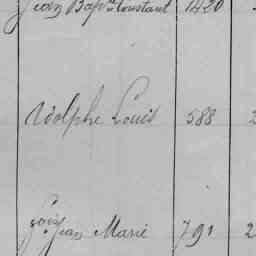 Jean Bap.te Constant 1420
Adolphe Louis 588 2
Jean Marie 791 2